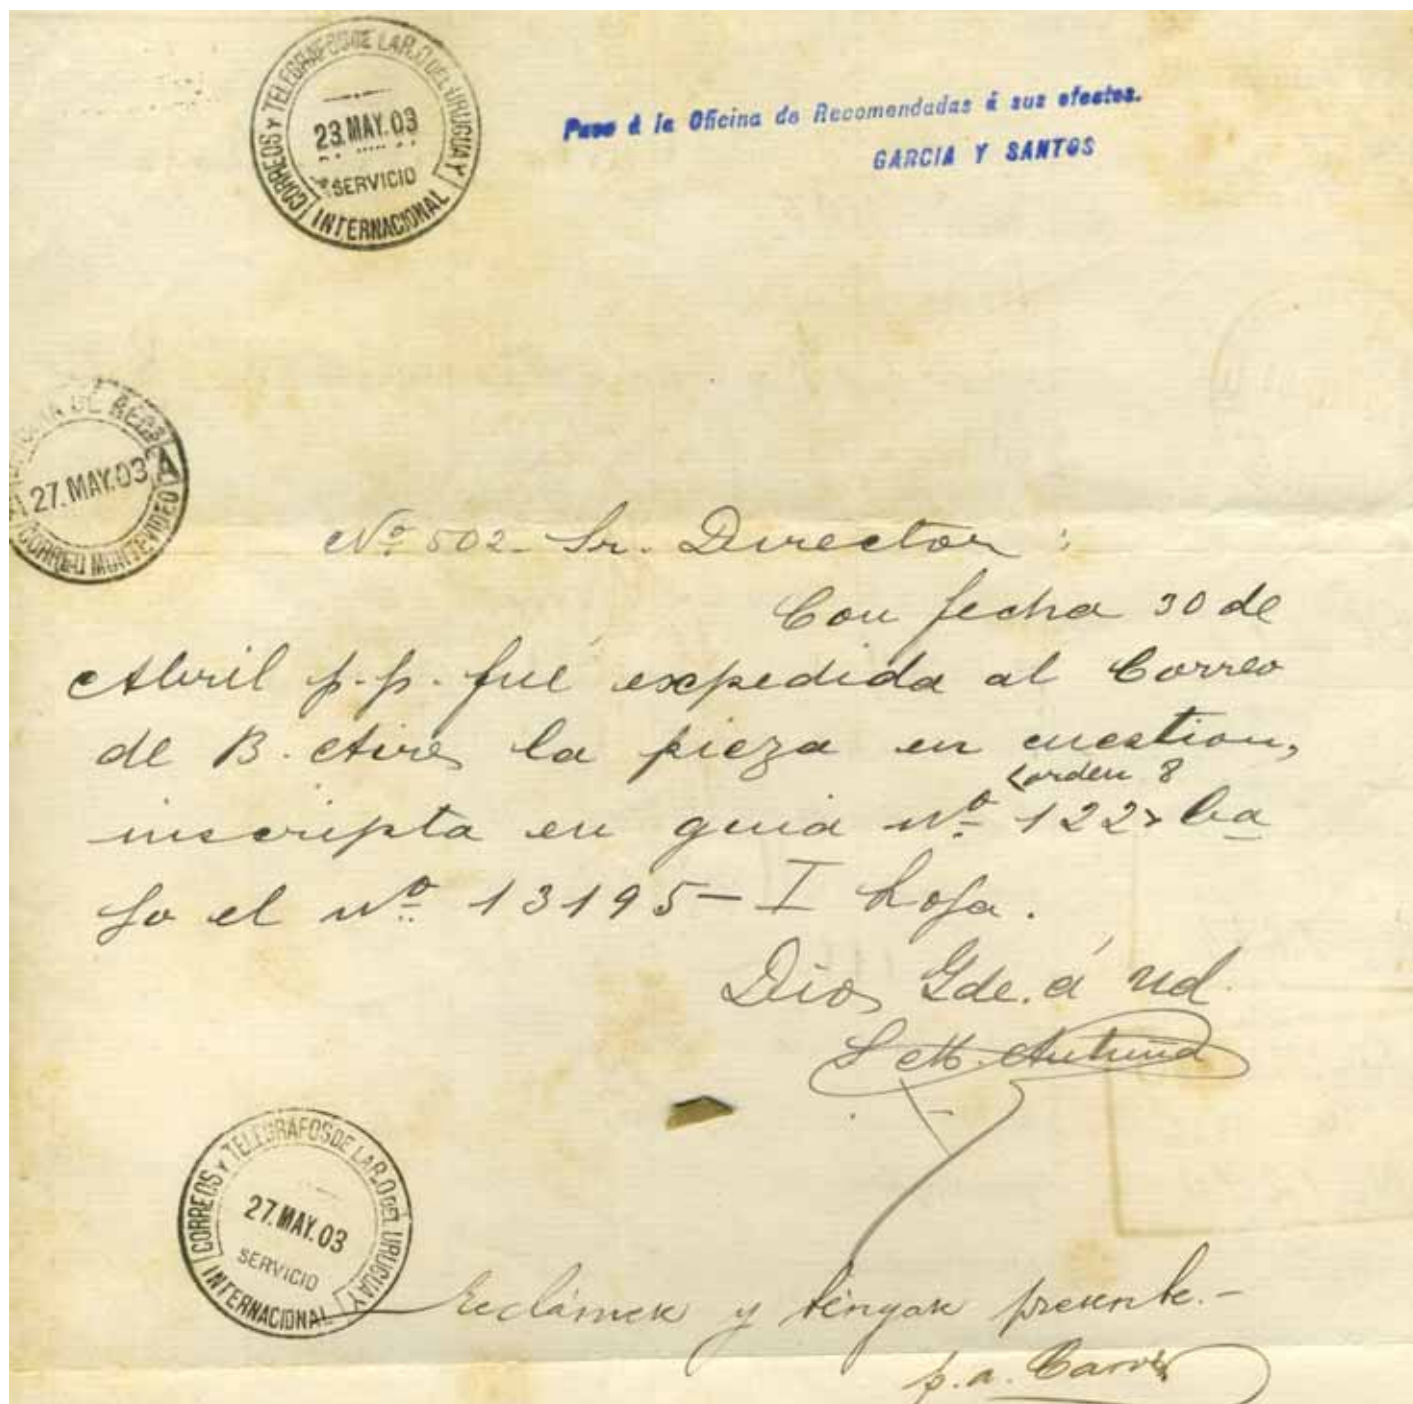 CORREOS Y TELEGRAFOS DE LA R.O. DEL URUGUAY
23.MAY.03
SERVICIO
INTERNACIONAL
Pase á la Oficina de Recomendadas á sus efectos.
GARCIA Y SANTOS
27.MAY.03
A
CORREO MONTEVIDEO
Nº 502 - Sr. Director:
Con fecha 30 de
Abril p.p. fué expedida al Correo
de B. Aires la pieza en cuestion,
<orden 8
inscripta en guia nº 122> ba
jo el nº 13195 - I hoja.
Dios Gde. á Ud.
CORREOS Y TELEGRAFOS DE LA R.O. DEL URUGUAY
27.MAY.03
SERVICIO
INTERNACIONAL
Reclámese y téngase presente.-
p.a.